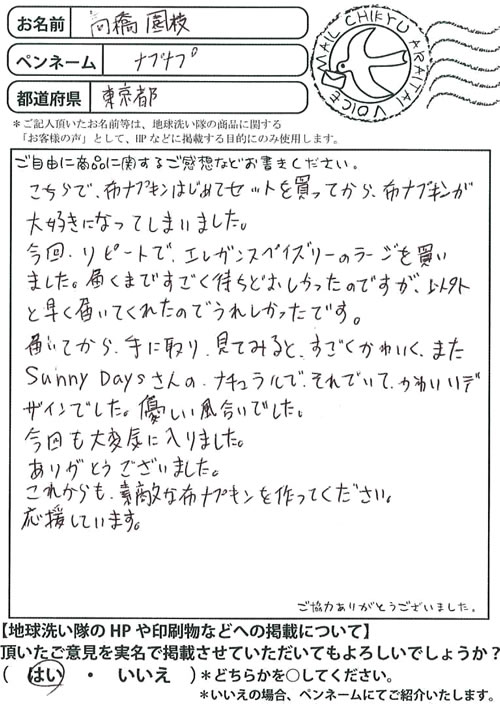 お名前 高橋 園枝
ペンネーム ナプナプ
都道府県 東京都
MAIL CHIKYU ARAITAI VOICE
＊ご記入頂いたお名前等は、地球洗い隊の商品に関する
「お客様の声」として、HPなどに掲載する目的にのみ使用します。
ご自由に商品に関するご感想などお書きください。
こちらで、布ナプキンはじめてセットを買ってから、布ナプキンが
大好きになってしまいました。
今回、リピートで、エレガンスペイズリーのラージを買い
ました。届くまですごく待ちどおしかったのですが、以外
と早く届いてくれたのでうれしかったです。
届いてから、手に取り、見てみると、すごくかわいく、また
Sunny Daysさんの、ナチュラルで、それでいて、かわいいデ
ザインでした。優しい風合いでした。
今回も大変気に入りました。
ありがとうございました。
これからも、素敵な布ナプキンを作ってください。
応援しています。
ご協力ありがとうございました。
【地球洗い隊のHPや印刷物などへの掲載について】
頂いたご意見を実名で掲載させていただいてもよろしいでしょうか？
（ はい ・ いいえ ）＊どちらかを○してください。
＊いいえの場合、ペンネームにてご紹介いたします。